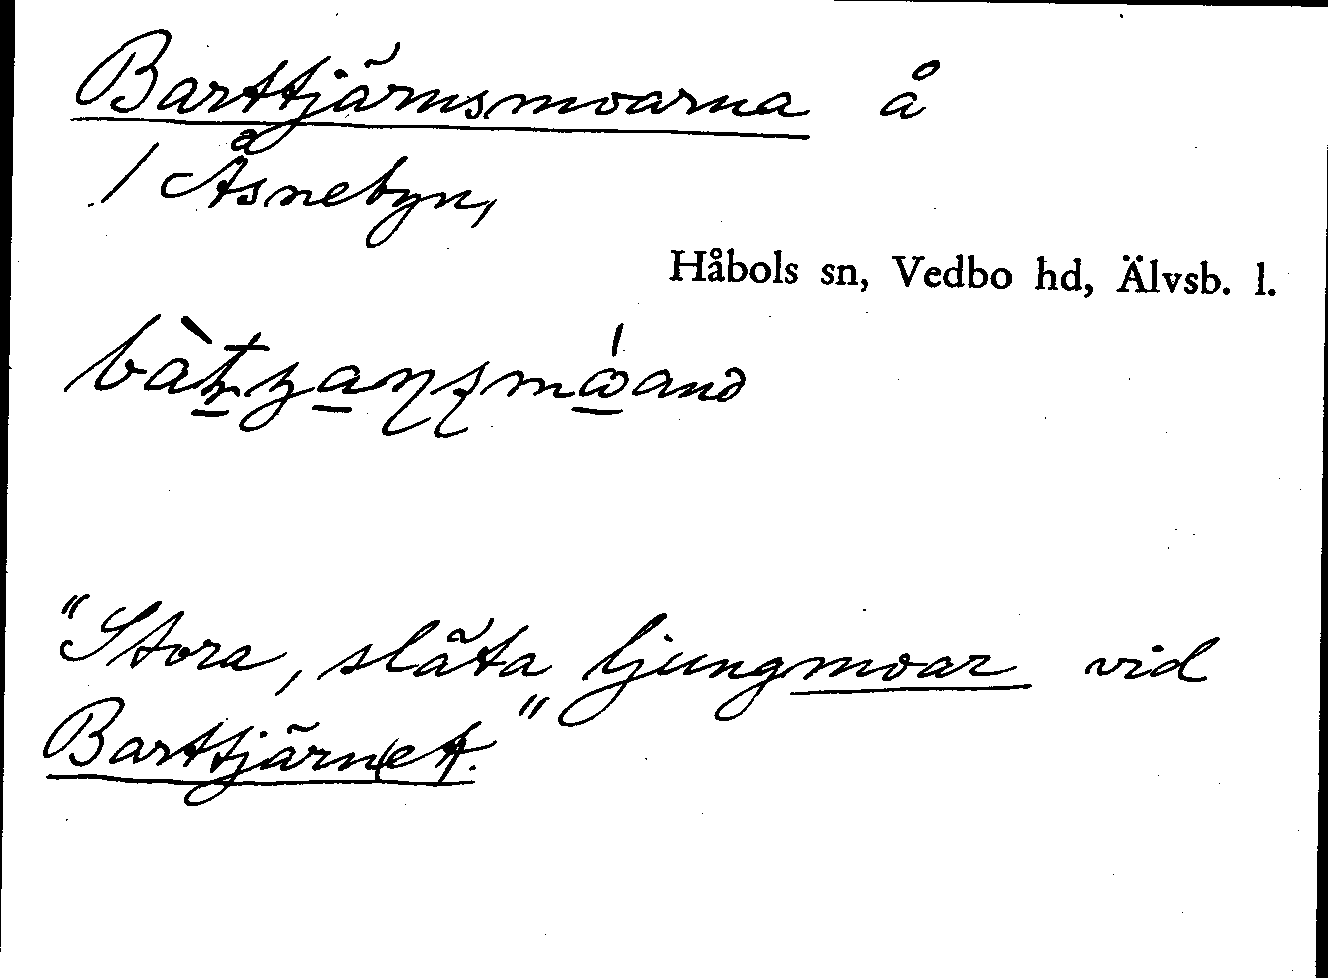 Barttjärnsmoarna å
1 Åsnebyn,
Håbols sn, Vedbo hd, Älvsb. l.
"Stora, släta ljungmoar vid
Barttjärn(et)."